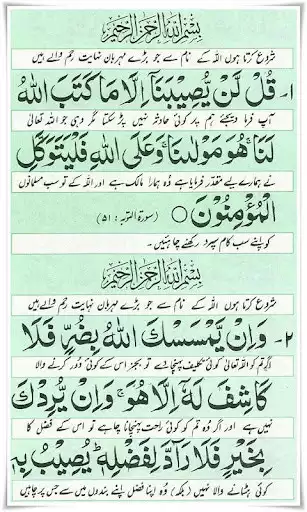 بِسْمِ اللهِ الرَّحْمٰنِ الرَّحِيْمِ
شروع کرتا ہوں اللہ کے نام سے جو بڑے مہربان نہایت رحم والے ہیں
۱۔ قُلْ لَّنْ يُّصِيْبَنَآ اِلَّا مَا كَتَبَ اللهُ
آپ فرما دیجئے ہم پر کوئی حادثہ نہیں پڑ سکتا مگر وہی جو اللہ تعالیٰ
لَنَا هُوَ مَوْلٰىنَا وَعَلَى اللهِ فَلْيَتَوَكَّلِ
نے ہمارے لیے مقدر فرمایا ہے وہ ہمارا مالک ہے اور اللہ کے تو سب مسلمانوں
الْمُؤْمِنُوْنَ ○ (سورۃ التوبہ : ۵۱)
کو اپنے سب کام سپرد رکھنے چاہئیں۔
بِسْمِ اللهِ الرَّحْمٰنِ الرَّحِيْمِ
شروع کرتا ہوں اللہ کے نام سے جو بڑے مہربان نہایت رحم والے ہیں
۲۔ وَاِنْ يَّمْسَسْكَ اللهُ بِضُرٍّ فَلَا
اگر تم کو اللہ تعالیٰ کوئی تکلیف پہنچائے تو بجز اس کے کوئی دور کرنے والا
كَاشِفَ لَهٗٓ اِلَّا هُوَ ۚ وَاِنْ يُّرِدْكَ
نہیں ہے اور اگر وہ تم کو کوئی راحت پہنچانا چاہے تو اس کے فضل کا
بِخَيْرٍ فَلَا رَآدَّ لِفَضْلِهٖ ؕ يُصِيْبُ بِهٖ
کوئی ہٹانے والا نہیں (بلکہ) وہ اپنا فضل اپنے بندوں میں سے جس پر چاہیں